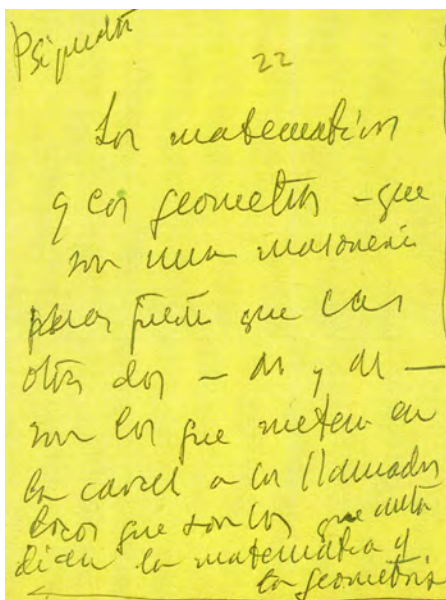 22
Los matemáticos
y los geometras - que
son una masonería
más fuerte que las
otras dos - M y M -
son los que meten en
la cárcel a los llamados
locos que son los que
la matemática y
la geometría